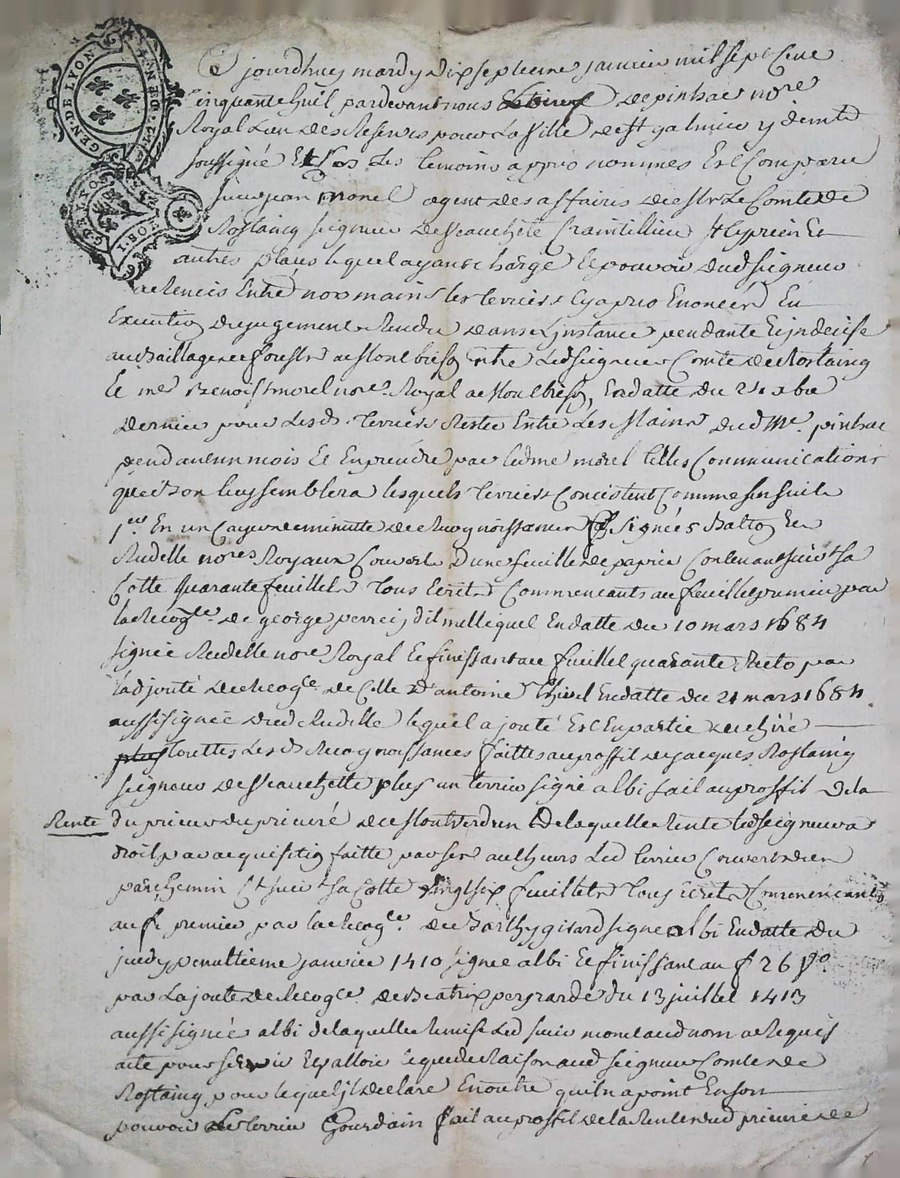 GEN DE LYON
jourdhuy mardy dix septieme janvier mil sept cent
Cinquante huit pardevant nous Etienne de pinhac nore
Royal Lun des Reservés pour La Ville de st galmier y demt
soussigné Et Les temoins apprès nommes Est Comparu
sieur jean morel agent des affaires de Le Comte de
Rostaing seigneur de Veauchette Craintillieu st Cyprien Et
autres places lequel ayant charge Et pouvoir dud seigneur
a Remis Entre nos mains les terriers Cy apres Enoncés En
Execution du jugement Rendu dans Linstance pendante Et indecise
au Baillage de forest a Montbrison Entre Led seigneur Comte de Rostaing
Et me Benoist morel nore Royal a Montbrison, En datte du 24 xbre
dernier pour Lesd. terriers Rester Entre Les Mains dud Me. pinhac
pendant un mois Et En prendre par led me morel telles Communications
que bon luy semblera lesquels terriers Concistent Comme sensuit
1er. En un Cayer de minutte de Recognoissances signées Et
Rudelle nores Royaux Couvert d'une feuille de papier Contenant suivt sa
Cotte Quarante feuillets Tous Ecrits Commencants au feuillet premier par
la Recogce. de george perrey dit En datte du 10 mars 1684
signée Rudelle nore Royal Et finissant au feuillet quarante Recto par
Ladjouté de Recogce de Celle D'antoine En datte du 21 mars 1684
aussi signée dud Rudelle lequel ajouté Est En partie dechiré
plus touttes Lesd Recognoissances faittes au proffit de jacques Rostaing
seigneur de Veauchette plus un terrier signé albi fait au proffit de la
Rente du prieur du prieuré de Montverdun de laquelle Rente led seigneur a
droit par acquisition faitte par ses autheurs Led terrier Couvert d'un
parchemin Ct suivt sa Cotte vingt six feuillets Tous Ecrits Commencants
au f. premier par la Recogce. de Barthy girard signe albi En datte du
jeudy penultieme janvier 1410 signée albi Et finissant au f 26 vo
par Lajouté de Recogce. de Beatrix du 13 juillet 1413
aussi signée albi de laquelle Remise Led sieur morel aud nom a Requis
acte pour servir Et valloir ce que de Raison aud seigneur Comte de
Rostaing pour lequel il declare En outre quil n'a point En son
pouvoir Le terrier Gourdain fait au proffit de la Rente dud prieuré de